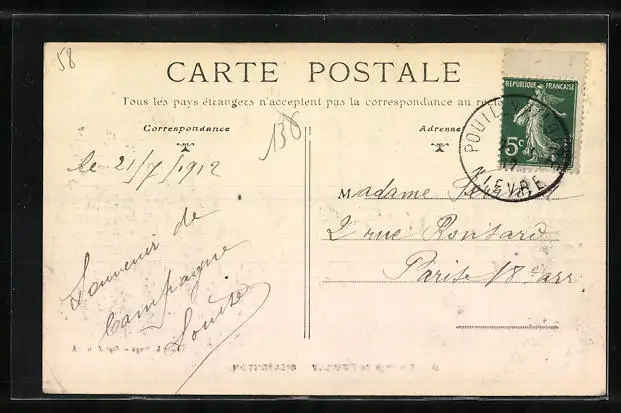 58
CARTE POSTALE
Tous les pays étrangers n'acceptent pas la correspondance au recto
Correspondance
136
Adresse
RÉPUBLIQUE FRANÇAISE
5c
NIEVRE
le 21/7/1912
Souvenir de
Campagne
Louise
Madame
2 rue Ronsard
Paris 18e arr